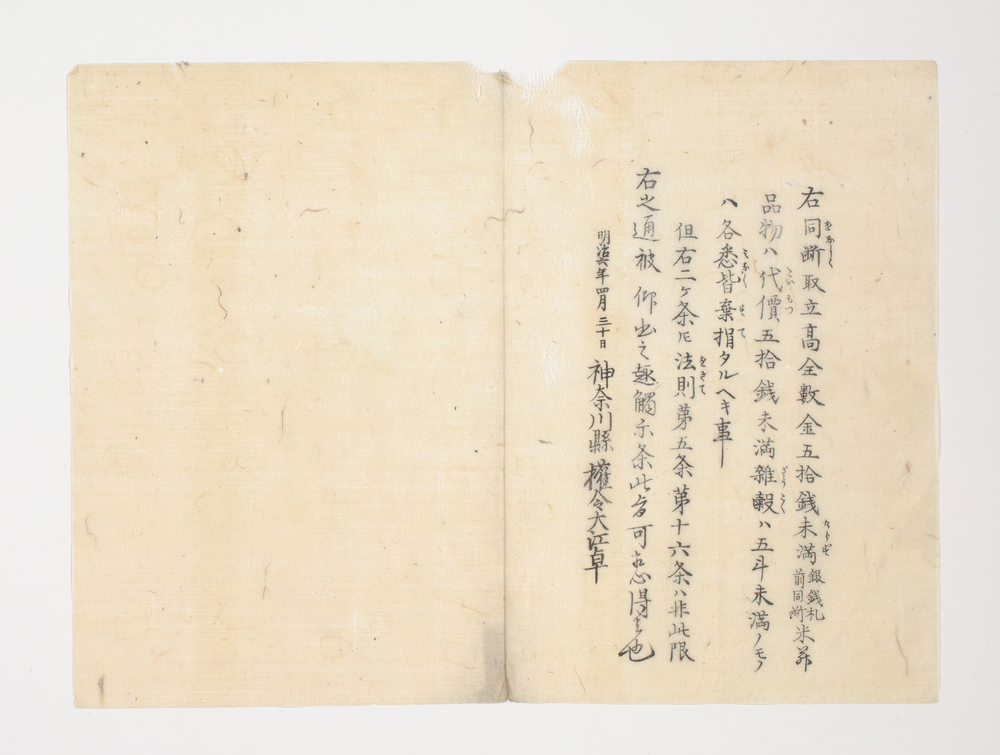 右同断取立高全数金五拾銭未満銀銭札前同断米并
品物ハ代價五拾銭未満雜穀ハ五斗未満ノモノ
ハ各悉皆棄捐タルヘキ事
但右二ケ条㪽法則第五条第十六条ハ非此限
右之通被 仰出之趣觸示条此旨可相心得者也
明治六年四月三十日 神奈川縣權令大江卓